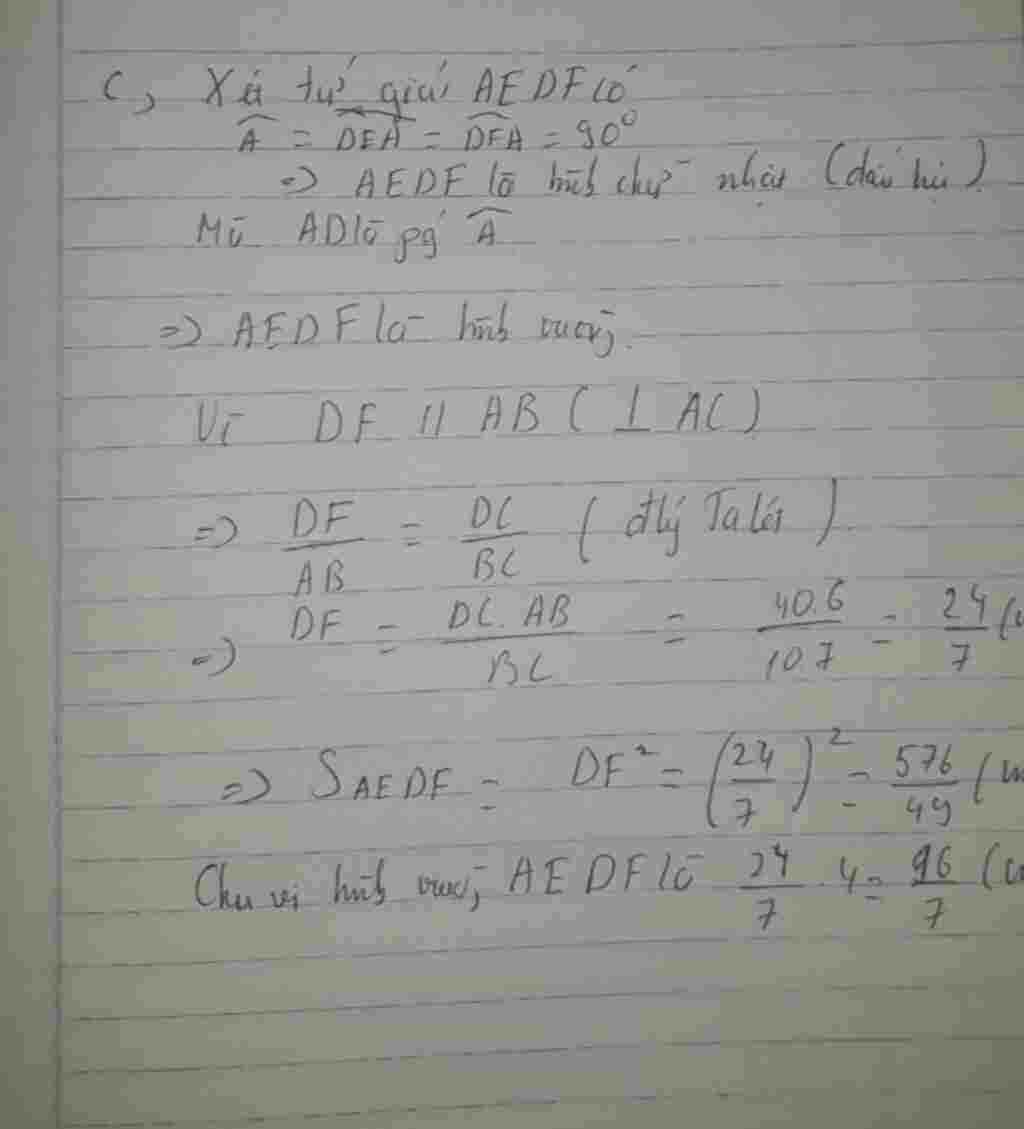 c, Xét tứ giác AEDF có
Â = DEA = DFA = 90°
=> AEDF là hình chữ nhật (dấu hiệu)
Mà AD là pg Â
=> AEDF là hình vuông.
Vì DF // AB (⊥ AC)
=> DF/AB = DC/BC (đlý Talét).
=> DF = DC.AB/BC = 40.6/10.7 = 24/7 (
=> S AEDF = DF² = (24/7)² = 576/49 (
Chu vi hình vuông AEDF là 24/7 . 4 = 96/7 (